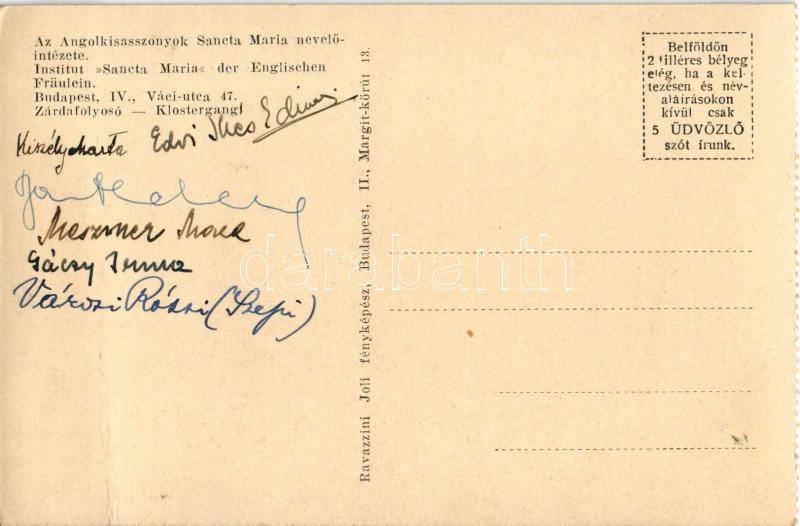 Az Angolkisasszonyok Sancta Maria nevelő-
intézete.
Institut »Sancta Maria« der Englischen
Fräulein.
Budapest, IV., Váci-utca 47.
Zárdafolyosó — Klostergang
Kiszély Márta
Edvi Illés
Meszner
Gáczy Irma
Városi Rózsi (Szepi)
Ravazzini Joli fényképész, Budapest, II., Margit-körút 13.
Belföldön
2 filléres bélyeg
elég, ha a kel-
tezésen és név-
aláírásokon
kívül csak
5 ÜDVÖZLŐ
szót írunk.
darabanth